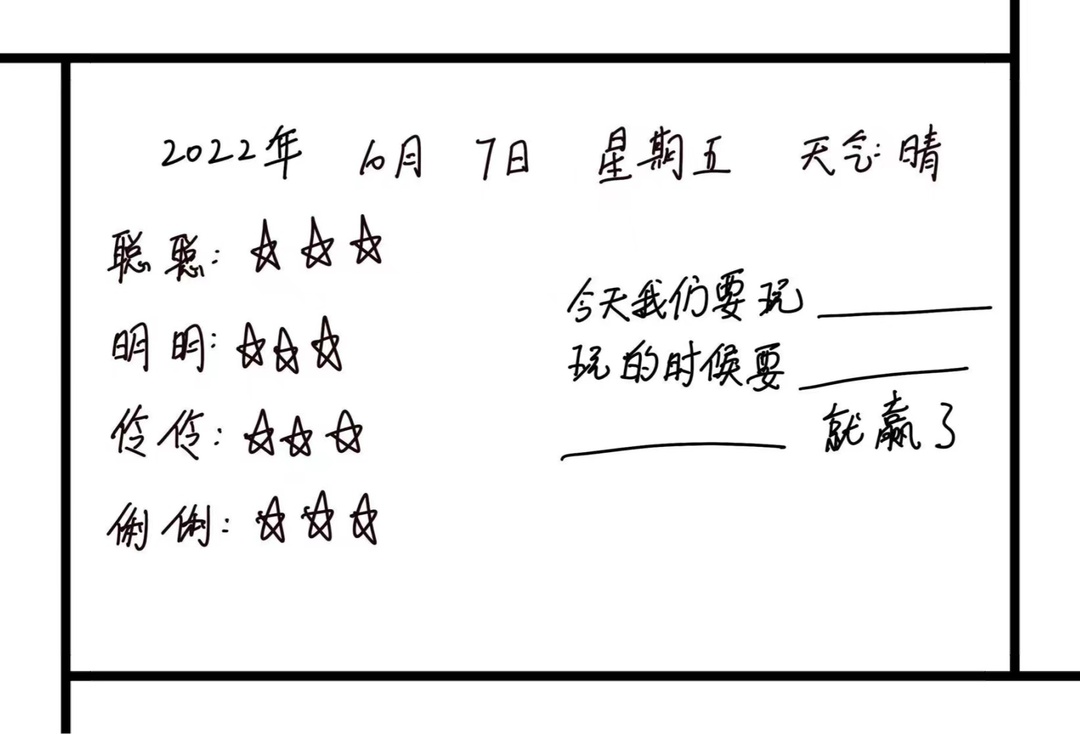 2022年 10月 7日 星期五 天气:晴
聪聪:☆☆☆
明明:☆☆☆
伶伶:☆☆☆
俐俐:☆☆☆
今天我们要玩______
玩的时候要______
______就赢了